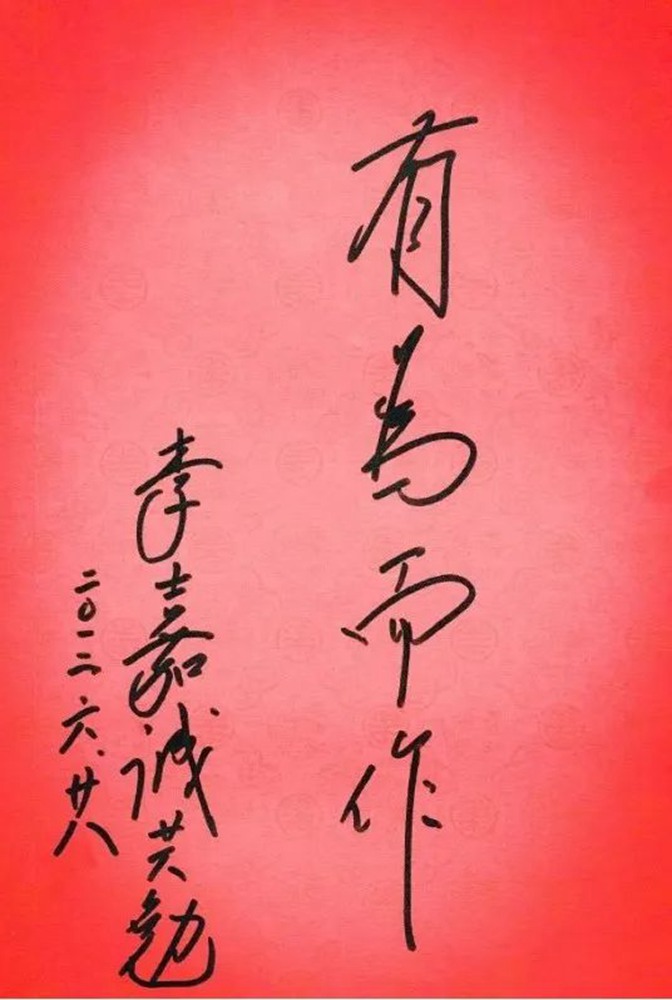 有為而作
李嘉誠共勉
二〇一二.六.廿八